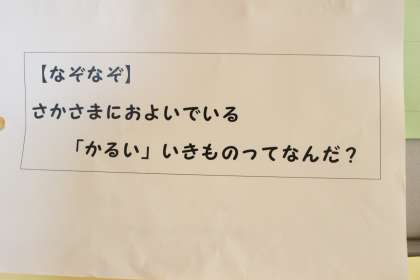 【なぞなぞ】
さかさまにおよいでいる
「かるい」いきものってなんだ？